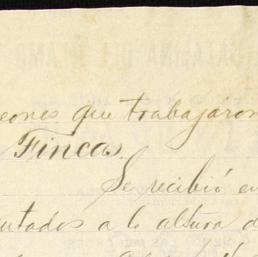 eones que trabajaron
Fincas.
Se recibió en
utados a la altura d